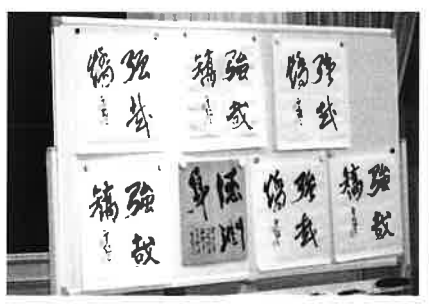 強哉
矯
強哉
矯
強哉
矯
強哉
矯
德潤
身
強哉
矯
強哉
矯